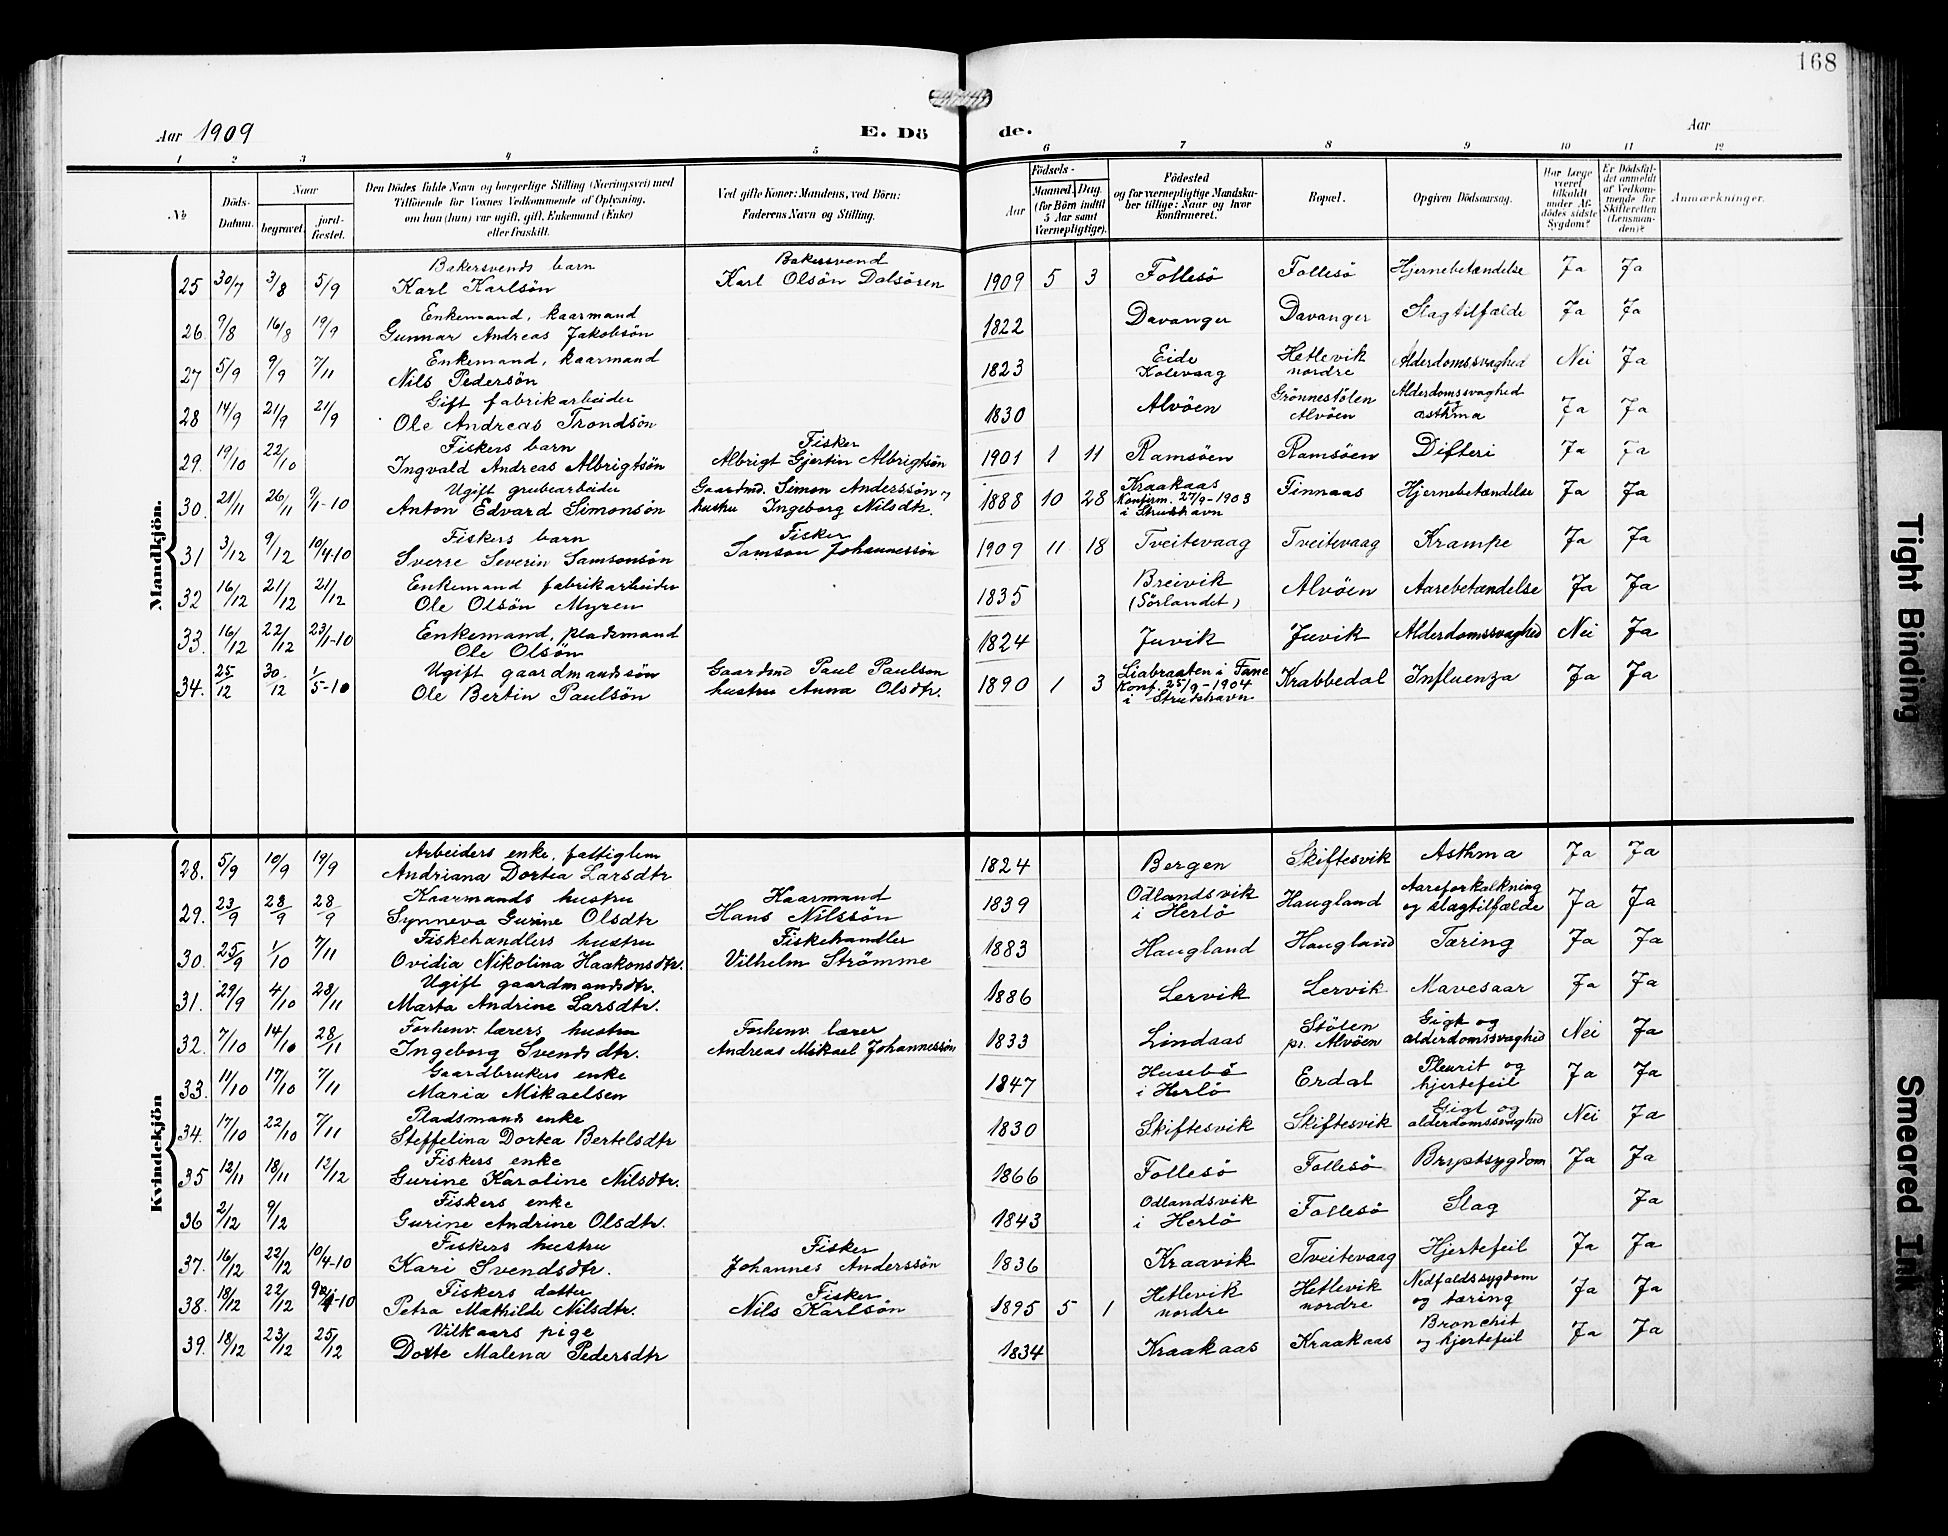 168
Aar 1909 E. Dö de. Aar
1 2 3 4 5 6 7 8 9 10 11 12
No
Döds-Datum.
Naar
begravet.
jord-fæstet.
Den Dödes fulde Navn og borgerlige Stilling (Næringsvei) med
Tilföiende for Voxnes Vedkommende af Oplysning,
om han (hun) var ugift, gift, Enkemand (Enke)
eller fraskilt.
Ved gifte Koner: Mandens, ved Börn:
Faderens Navn og Stilling.
Födsels-
Aar
Maaned. Dag.
(for Börn indtil
5 Aar samt
Værnepligtige).
Födested
og for værnepligtige Mandskaber tillige: Naar og hvor
konfirmeret.
Bopæl.
Opgiven Dödsaarsag.
Har Læge
været
tilkaldt
under Afdödes sidste
Sygdom?
Er Dödsfaldet anmeldt
af Vedkommende for
Skifteretten
(Lensmanden)?
Anmærkninger.
Mandkjön.
Bakersvends barn Bakersvend
25 30/7 3/8 5/9 Karl Karlsön Karl Olsön Dalsören 1909 5 3 Follesö Follesö Hjernebetændelse Ja Ja
Enkemand, kaarmand
26. 9/8 16/8 19/9 Gunnar Andreas Jakobsön 1822 Davanger Davanger Slagtilfælde Ja Ja
Enkemand, kaarmand Eide Hetlevik
27 5/9 9/9 7/11 Nils Pedersön 1823 Kolevaag nordre Alderdomssvaghed Nei Ja
Gift fabrikarbeider Grönnestölen Alderdomssvaghed og
28 14/9 21/9 21/9 Ole Andreas Trondsön 1830 Alvöen Alvöen asthma Ja Ja
Fiskers barn Fisker
29. 19/10 22/10 Ingvald Andreas Albrigtsön Albrigt Gjertin Albrigtsön 1901 1 11 Ramsöen Ramsöen Difteri Ja Ja
Ugift grubearbeider Gaardmd. Simon Anderssön og Kraakaas
30. 21/11 26/11 9/1-10 Anton Edvard Simonsön hustru Ingeborg Nilsdtr. 1888 10 28 Konfirm. 27/9-1903 Finnaas Hjernebetændelse Ja Ja
i Strudshavn
Fiskers barn Fisker
31 3/12 9/12 10/4-10 Sverre Severin Samsonsön Samson Johannessön 1909 11 18 Tveitevaag Tveitevaag Krampe Ja Ja
Enkemand fabrikarbeider Breivik
32 16/12 21/12 21/12 Ole Olsön Myren 1835 (Sörlandet) Alvöen Aarebetændelse Ja Ja
Enkemand, pladsmand
33. 16/12 22/12 23/1-10 Ole Olsön 1824 Juvik Juvik Alderdomssvaghed Nei Ja
Ugift gaardmandssön Gaardmd Paul Paulson Liabraaten i Fane
34. 25/12 30/12 1/5-10 Ole Bertin Paulsön hustru Anna Olsdtr. 1890 1 3 Konf. 25/9-1904 Krabbedal Influenza Ja Ja
i Strudshavn
Kvindekjön
Arbeiders enke, fattiglem
28. 5/9 10/9 19/9 Andriana Dortea Larsdtr 1824 Bergen Skiftesvik Asthma Ja Ja
Kaarmands hustru Kaarmand Odlandsvik Aareforkalkning
29. 23/9 28/9 28/9 Synneva Gurine Olsdtr Hans Nilssön 1839 i Herlö Haugland og slagtilfælde Ja Ja
Fiskehandlers hustru Fiskehandler
30. 25/9 1/10 7/11 Ovidia Nikolina Haakonsdtr. Vilhelm Strömme 1883 Haugland Haugland Tæring Ja Ja
Ugift gaardmandsdtr.
31. 29/9 4/10 28/11 Marta Andrine Larsdtr. 1886 Lervik Lervik Mavesaar Ja Ja
Forhenv. lærers hustru Forhenv. lærer Stölen Gigt og
32. 7/10 14/10 28/11 Ingeborg Svendsdtr. Andreas Mikael Johannessön 1833 Lindaas pr. Alvöen alderdomssvaghed Nei Ja
Gaardbrukers enke Husebö Pleurit og
33. 11/10 17/10 7/11 Maria Mikaelsen 1847 i Herlö Erdal hjertefeil Ja Ja
Pladsmands enke Gigt og
34. 17/10 22/10 7/11 Steffelina Dortea Bertelsdtr 1830 Skiftesvik Skiftesvik alderdomssvaghed Nei Ja
Fiskers enke
35 12/11 18/11 12/12 Gurine Karoline Nilsdtr. 1866 Follesö Follesö Brystsygdom Ja Ja
Fiskers enke Odlandsvik
36 2/12 9/12 Gurine Andrine Olsdtr. 1843 i Herlö Follesö Slag Ja
Fiskers hustru Fisker
37. 16/12 22/12 10/4-10 Kari Svendsdtr. Johannes Anderssön 1836 Kraavik Tveitevaag Hjertefeil Ja Ja
Fiskers datter Fisker Hetlevik Hetlevik Nedfaldssygdom
38. 18/12 22/12 Petra Mathilde Nilsdtr. Nils Karlsön 1895 5 1 nordre nordre og tæring Ja Ja
Vilkaars pige Bronchit
39. 18/12 23/12 25/12 Dorte Malena Pedersdtr 1834 Kraakaas Kraakaas og hjertefeil Ja Ja
Tight Binding
Smeared Ink